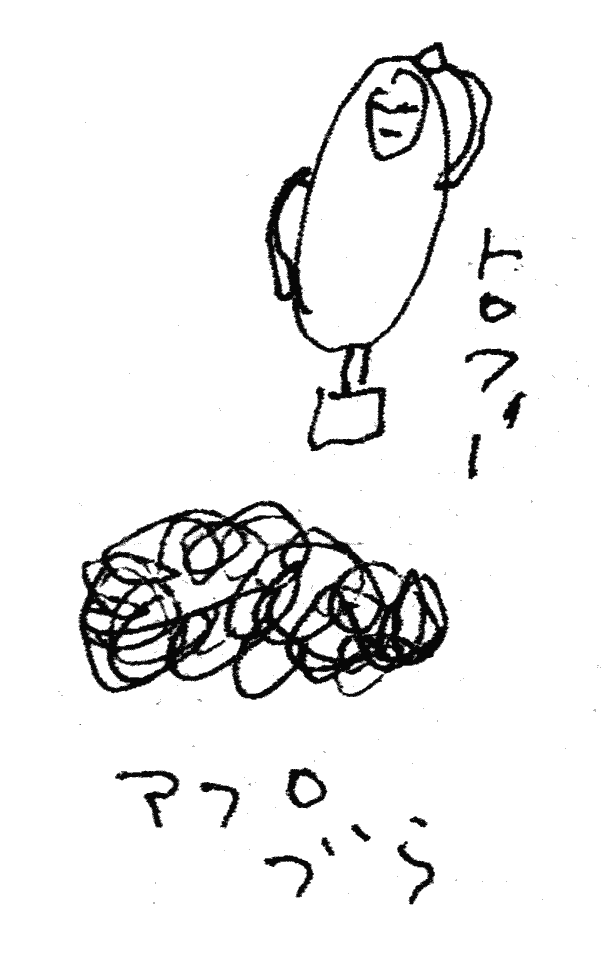 トロフィー
アフロ
づら